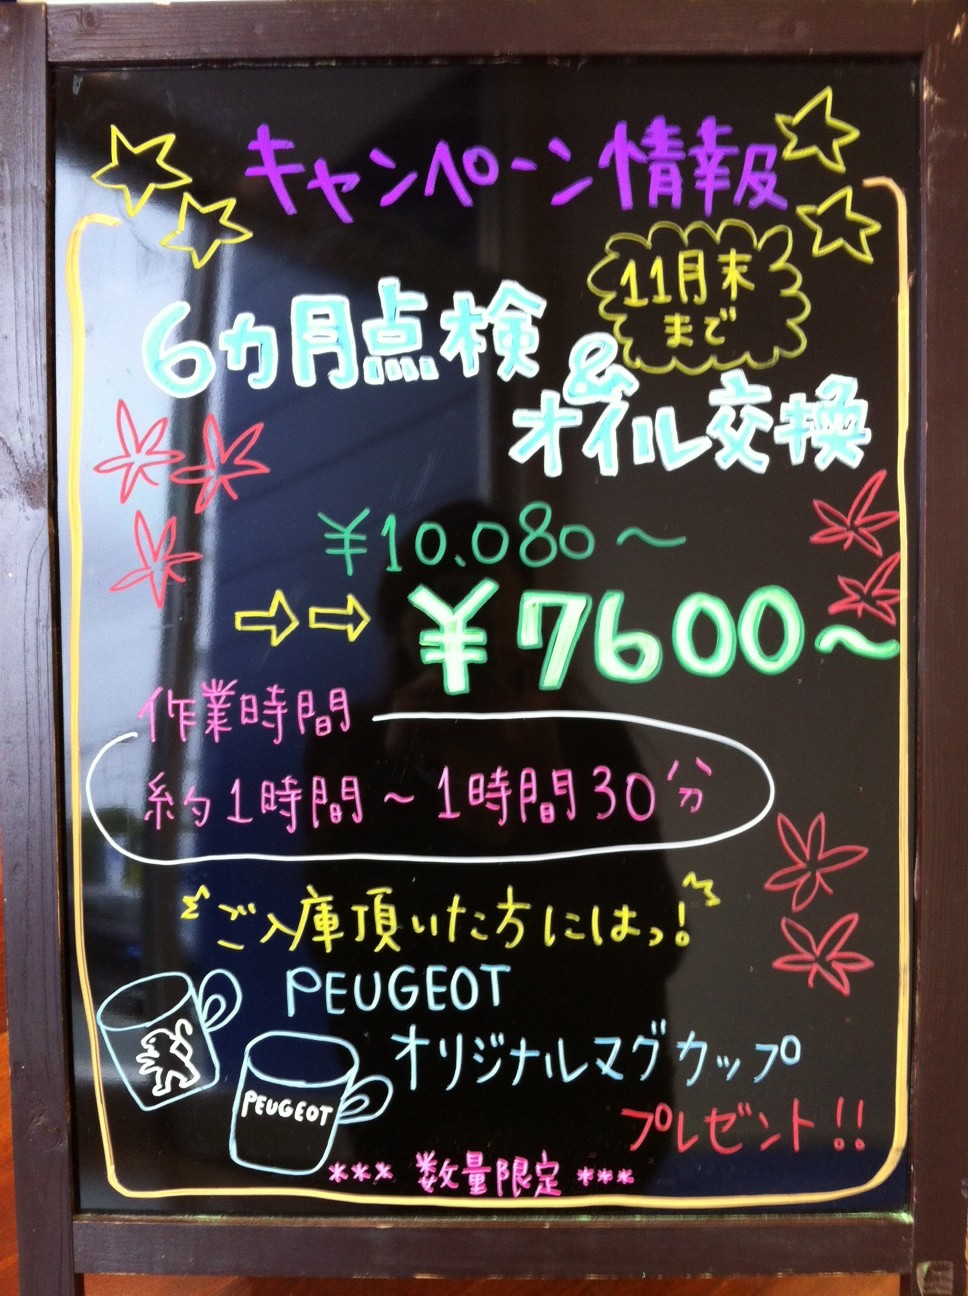 キャンペーン情報
11月末
まで
6カ月点検
&
オイル交換
¥10.080～
⇨⇨ ¥7600～
作業時間
約1時間～1時間30分
ご入庫頂いた方にはっ!
PEUGEOT
オリジナルマグカップ
PEUGEOT
プレゼント!!
*** 数量限定 ***